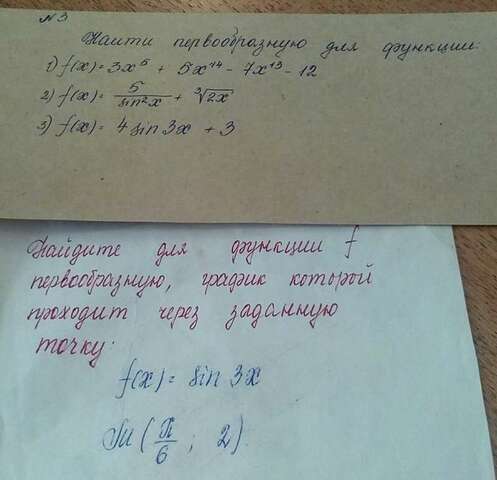 №3
Найти первообразную для функции:
1) f(x) = 3x⁵ + 5x¹⁴ - 7x¹³ - 12
2) f(x) = 5/sin²x + ∛2x
3) f(x) = 4 sin 3x + 3
Найдите для функции f
первообразную, график которой
проходит через заданную
точку:
f(x) = sin 3x
M (π/6 ; 2)